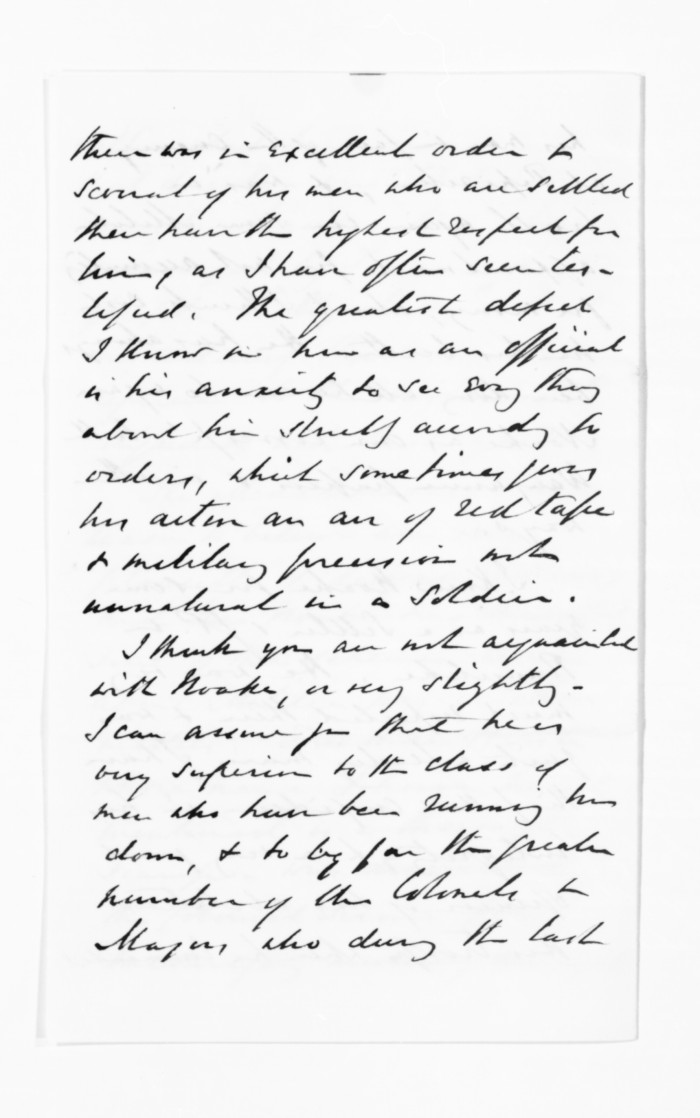 there was in excellent order &
several of his men who are settled
there have the highest respect for
him, as I have often seen tes-
tified. The greatest defect
I know in him as an official
is his anxiety to see every thing
about him strictly according to
orders, which sometimes gives
his action an air of red tape
& military precision not
unnatural in a Soldier.
I think you are not acquainted
with Noake, or very slightly -
I can assure you that he is
very superior to the class of
men who have been running him
down, & to by far the greater
number of the Colonels &
Majors who during the last